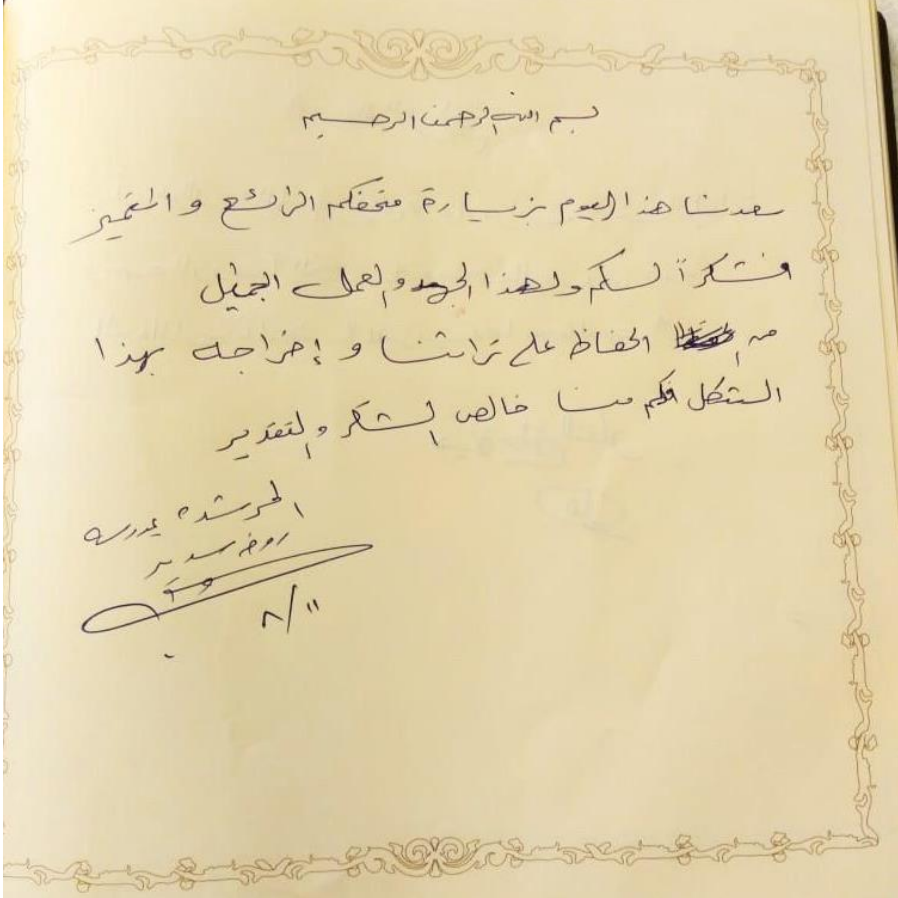 بسم الله الرحمن الرحيم
سعدنا هذا اليوم بزيارة متحفكم الرائع و المتميز
فشكراً لكم ولهذا الجهد والعمل الجميل
من الحفاظ على تراثنا و إخراجه بهذا
الشكل فلكم منا خالص الشكر والتقدير
المرشدة بمدرسة
روضة سدير
٨/١١